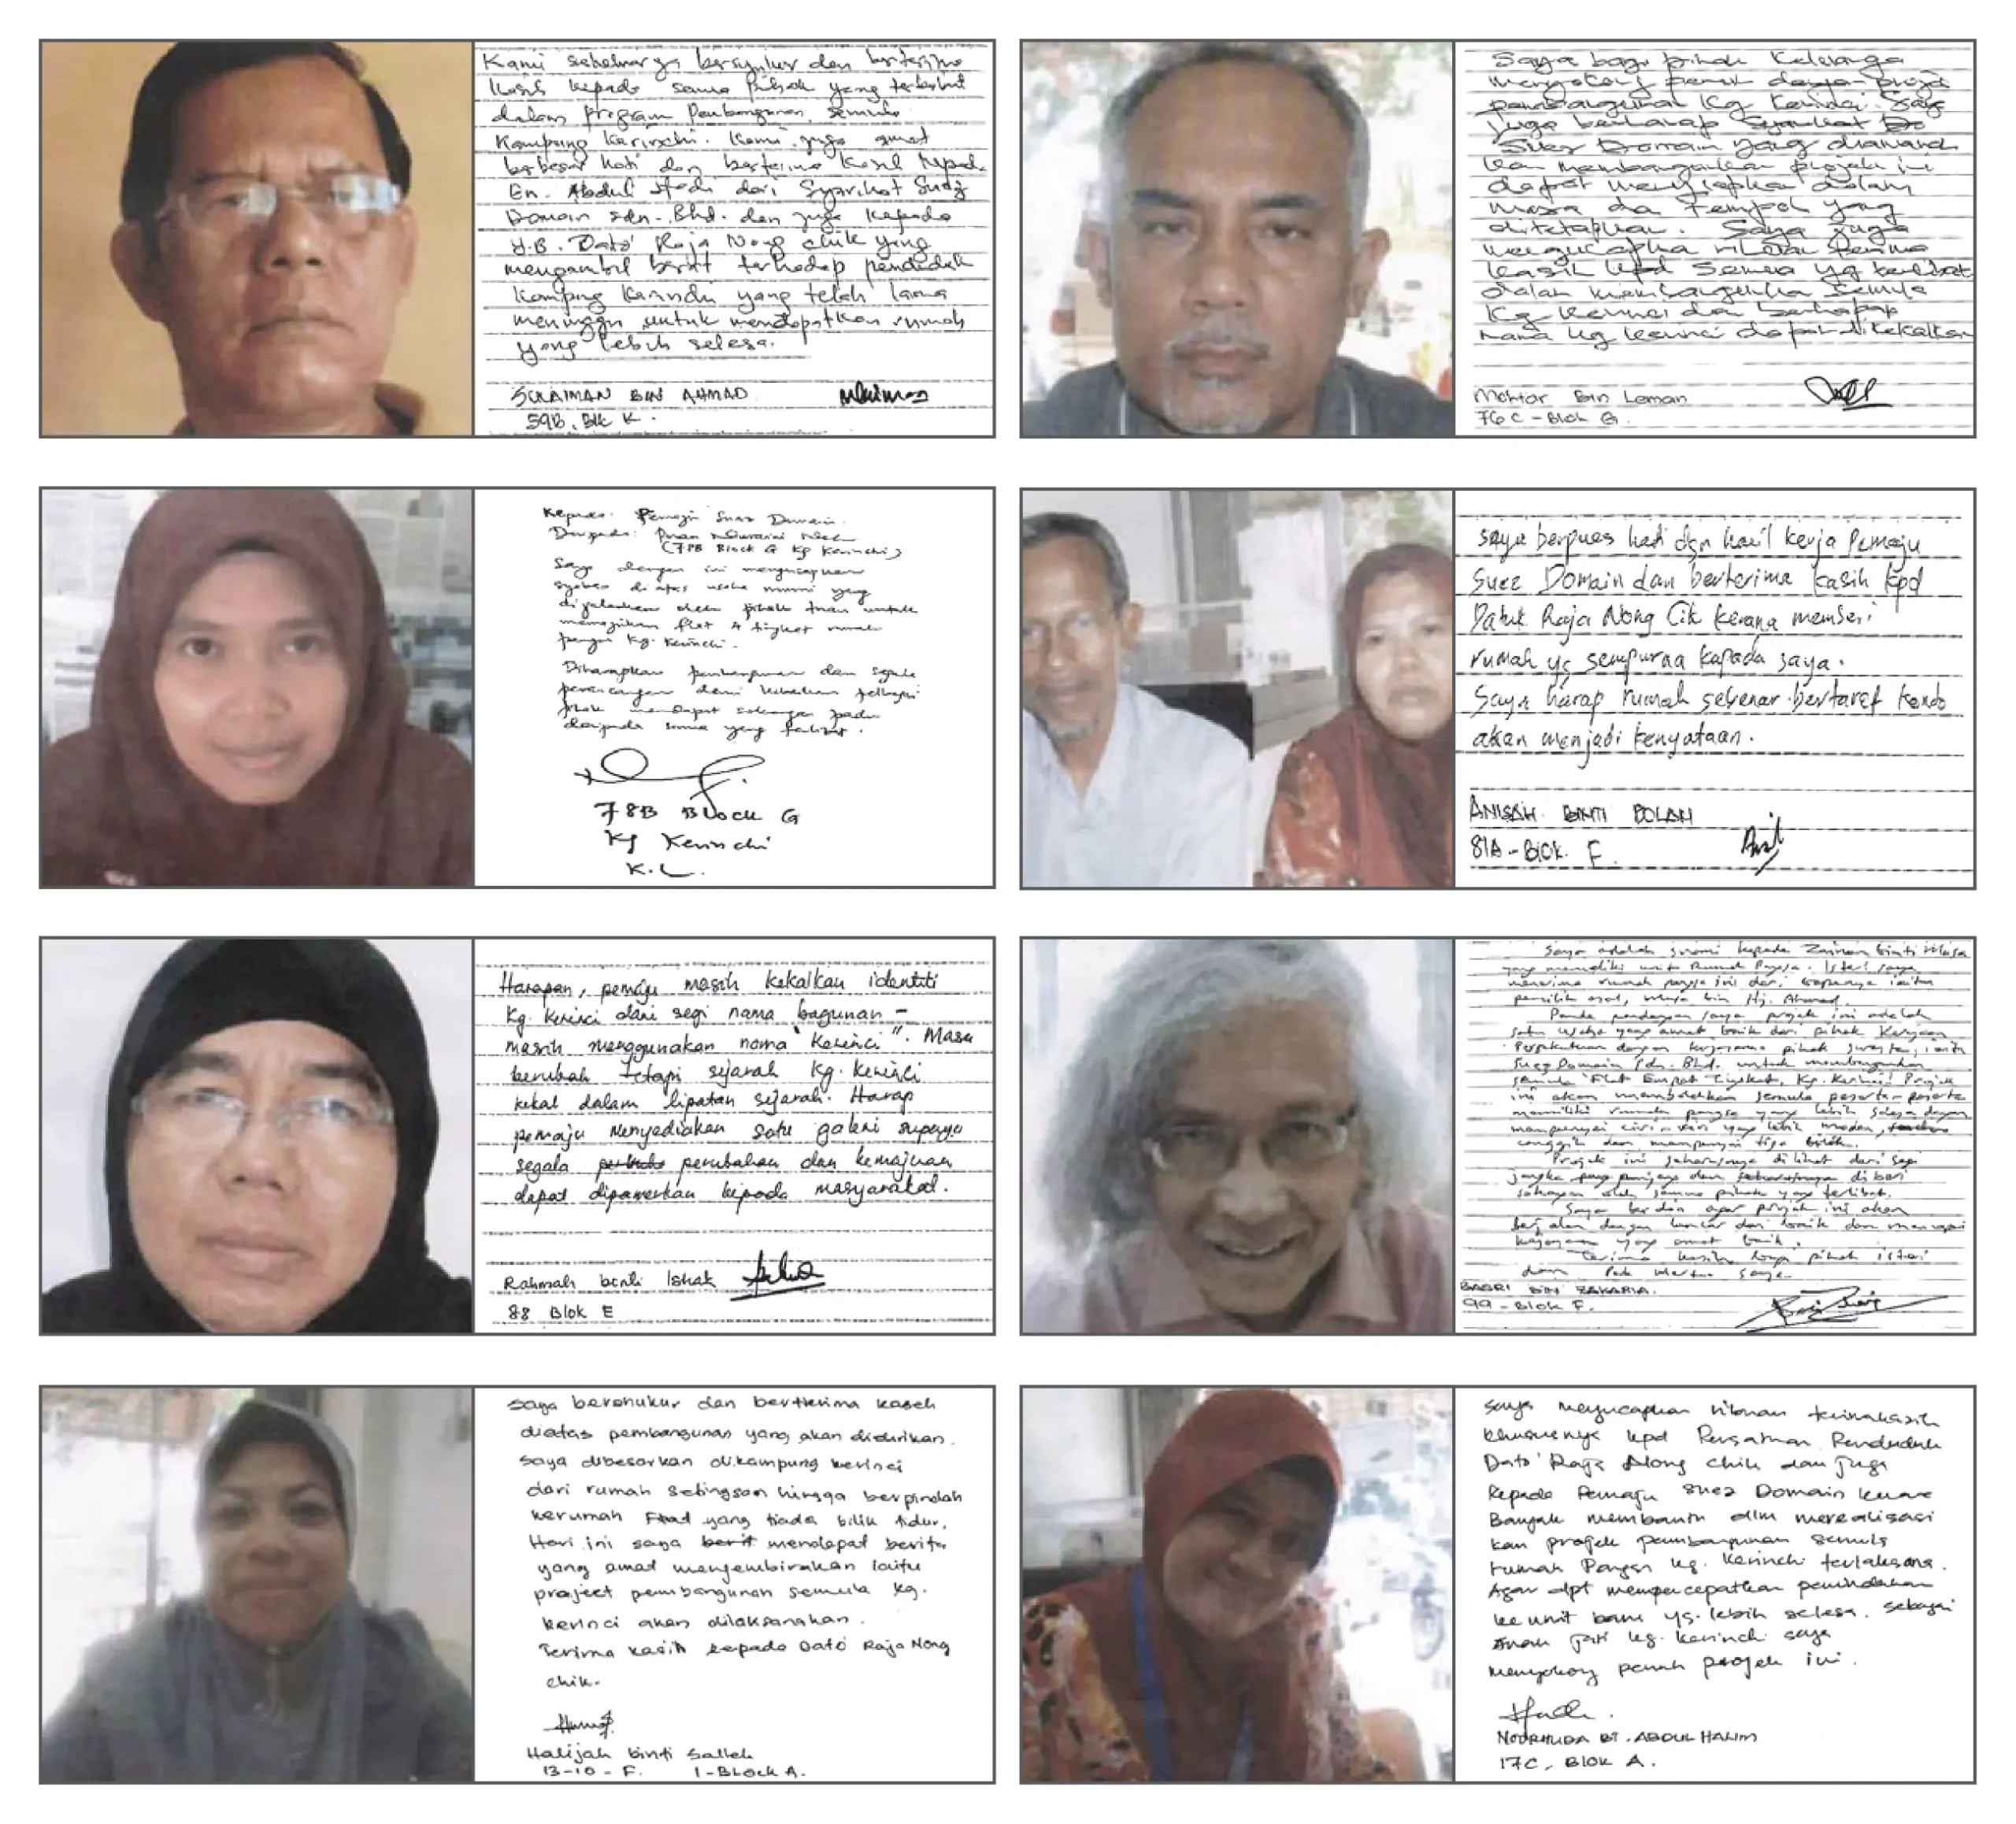 Kami sekeluarga bersyukur dan berterima
kasih kepada semua pihak yang terbabit
dalam program Pembangunan semula
Kampung Kerinchi. Kami juga amat
berbesar hati dan berterima kasih kepada
En. Abdul dari Syarikat Suez
Domain Sdn. Bhd. dan juga kepada
Y.B. Dato' Raja Nong chik yang
mengambil berat terhadap penduduk
Kampung Kerinchi yang telah lama
menunggu untuk mendapatkan rumah
yang lebih selesa.
SULAIMAN BIN AHMAD
59B, Blk K.
Saya bagi pihak Keluarga
menyokong penuh dengan projek
pembangunan Kg Kerinci. Saya
juga berharap Syarikat
Suez Domain yang diamanah
kan membangunkan projek ini
dapat menyiapkan dalam
masa dan tempoh yang
ditetapkan. Saya juga
mengucapkan ribuan terima
kasih kpd semua yg terlibat
dalam membangunkan semula
Kg Kerinci dan berharap
nama Kg Kerinci dapat dikekalkan
Mohtar Bin Leman
76C - Blok G.
Kepada: Pemaju Suez Domain.
Daripada: Puan Nuraini
(78B Block G Kg Kerinchi)
Saya dengan ini mengucapkan
di atas usaha murni yang
dijalankan oleh pihak tuan untuk
memajukan flat 4 tingkat rumah
pangsa Kg. Kerinchi.
Diharapkan pembangunan dan segala
perancangan demi kebaikan pelbagai
pihak mendapat sokongan padu
daripada semua yang terlibat.
78B Block G
Kg Kerinchi
K.L.
Saya berpuas hati dgn hasil kerja Pemaju
Suez Domain dan berterima kasih kpd
Datuk Raja Nong Cik kerana memberi
rumah yg sempurna kapada saya.
Saya harap rumah sebenar bertaraf kondo
akan menjadi kenyataan.
ANISAH BINTI BOLAH
81A - Blok. F.
Harapan, pemaju masih kekalkan identiti
Kg. Kerinci dari segi nama bagunan -
masih menggunakan nama "Kerinci". Masa
berubah tetapi sejarah Kg. Kerinci
kekal dalam lipatan sejarah. Harap
pemaju menyediakan satu galeri supaya
segala perubahan dan kemajuan
dapat dipamerkan kepada masyarakat.
Rahmah binti Ishak
88 Blok E
Saya adalah suami kepada Zainan binti Musa
yang memiliki unit Rumah Pangsa. Isteri saya
menerima rumah pangsa ini dari bapanya iaitu
pemilik asal, Musa bin Hj. Ahmad.
Pada pandangan saya projek ini adalah
satu usaha yang amat baik dari pihak Kerajaan
Persekutuan dengan kerjasama pihak swasta, iaitu
Suez Domain Sdn. Bhd. untuk membangunkan
semula 'Flat Empat Tingkat, Kg. Kerinci'. Projek
ini akan membolehkan semula peserta-peserta
memiliki rumah pangsa yang lebih selesa dengan
mempunyai ciri-ciri yang lebih moden,
canggih dan mempunyai tiga bilik.
Projek ini seharusnya dilihat dari segi
jangka panjang dan seharusnya diberi
sokongan oleh semua pihak yang terlibat.
Saya berdoa agar projek ini akan
berjalan dengan lancar dan baik dan mencapai
kejayaan yang amat baik.
Terima kasih bagi pihak isteri
dan Pak Mertua saya
BADRI BIN ZAKARIA.
99 - Blok F.
Saya bershukur dan berterima kaseh
diatas pembangunan yang akan didirikan.
Saya dibesarkan dikampung kerinci
dari rumah setingson hingga berpindah
kerumah Flat yang tiada bilik tidur.
Hari ini saya berit mendapat berita
yang amat menyembirakan iaitu
project pembangunan semula Kg.
kerinci akan dilaksanakan.
Terima kasih kepada Dato Raja Nong
chik.
Halijah binti Salleh
13-10-F. 1-Block A.
Saya mengucapkan ribuan terimakasih
khususnya kpd Persatuan Penduduk
Dato' Raja Nong Chik dan juga
Kepada Pemaju Suez Domain kerana
Banyak membantu dlm merealisasi
kan projek pembangunan semula
rumah Pangsa Kg. Kerinchi terlaksana.
Agar dpt mempercepatkan pemindahan
ke unit baru yg. lebih selesa. Sebagai
Anak jati Kg. Kerinchi saya
menyokong penuh projek ini.
NOORHUDA BT. ABDUL HALIM
17C, Blok A.